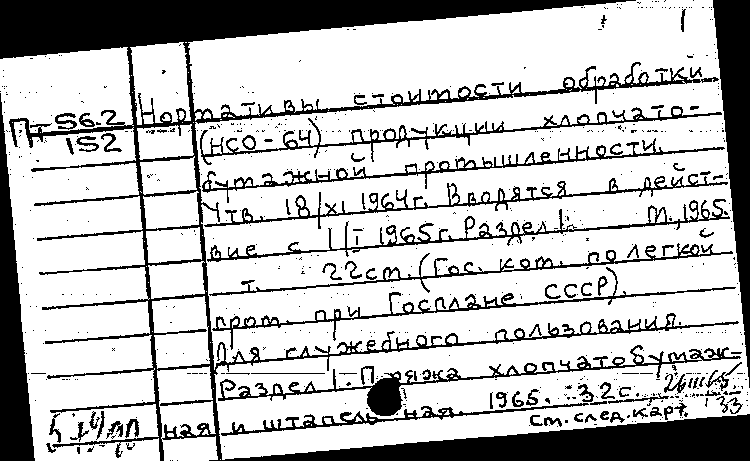 1
Пт 562
152
Нормативы стоимости обработки
(НСО-64) продукции хлопчато-
бумажной промышленности.
Утв. 18/XI 1964г. Вводятся в дейст-
вие с 1/I 1965г. Раздел 1. М., 1965.
т. 22см. (Гос. ком. по легкой
пром. при Госплане СССР).
Для служебного пользования.
Раздел 1. Пряжа хлопчатобумаж-
ная и штапельная. 1965. 32 с.
см. след. карт. 33